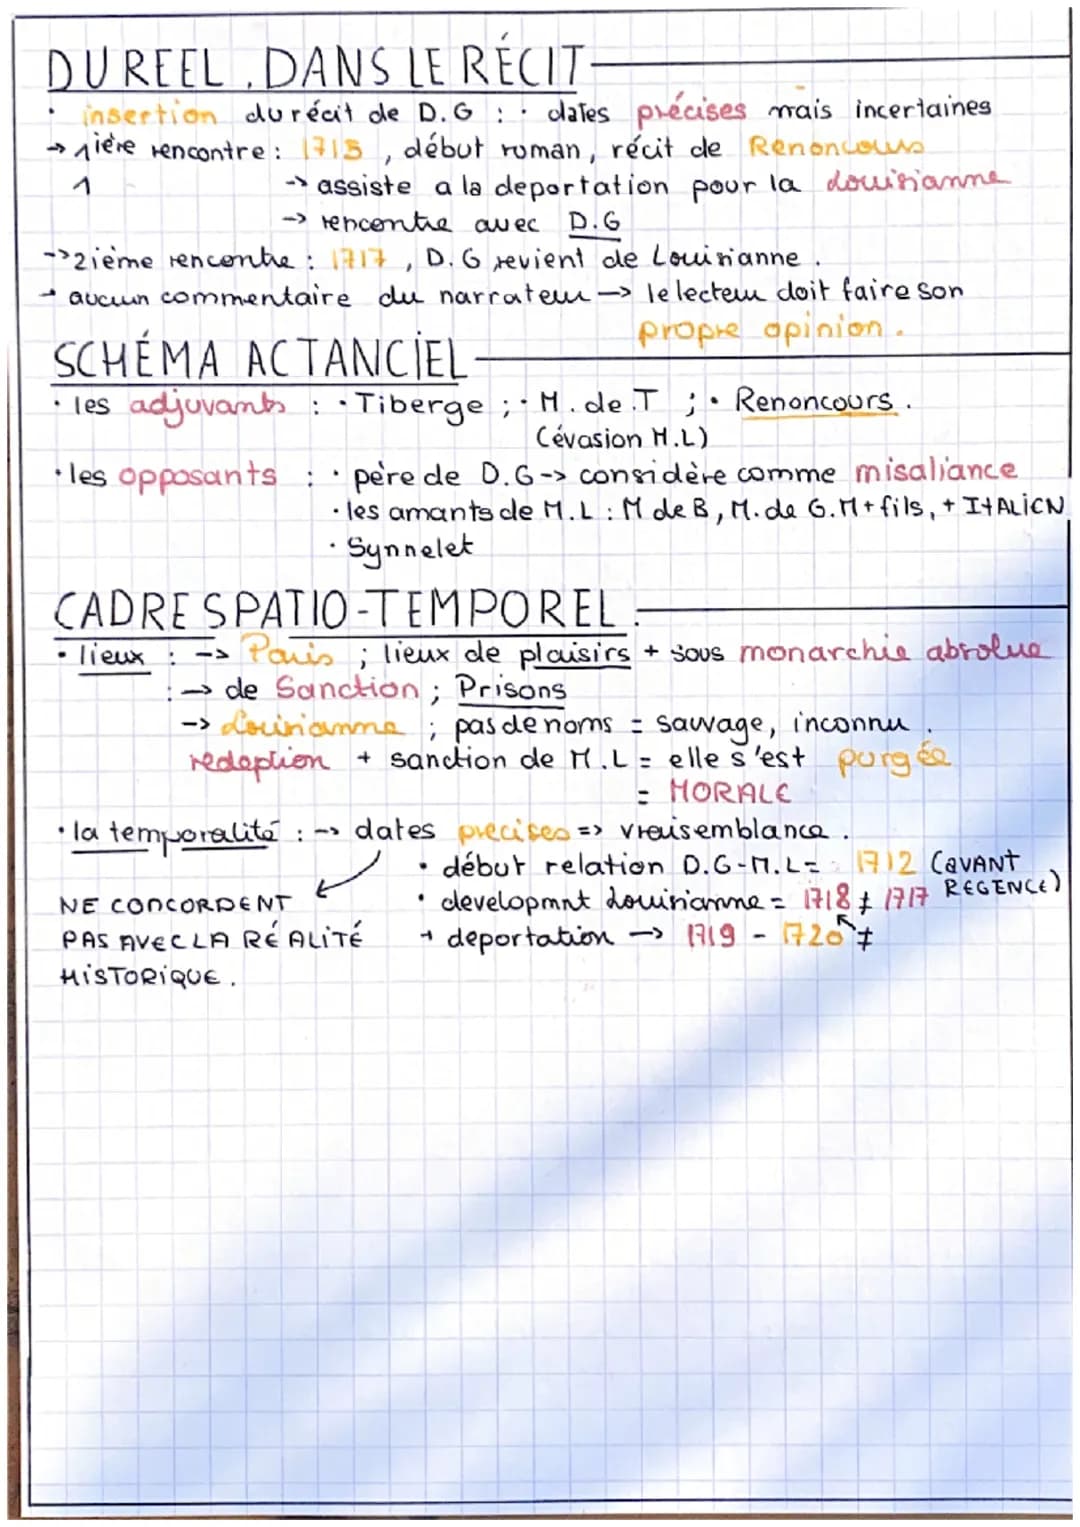 DU REEL, DANS LE RÉCIT
• insertion du récit de D.G : • dates précises mais incertaines
→ 1ière rencontre : 1715, début roman, récit de Renoncours
1 -> assiste a la deportation pour la Louisianne
-> rencontre avec D.G
->2ième rencontre : 1717, D.G revient de Louisianne.
→ aucun commentaire du narrateur -> le lecteur doit faire son
propre opinion.
SCHÉMA ACTANCIEL
• les adjuvants : • Tiberge ; • M. de.T ; • Renoncours.
(évasion M.L)
• les opposants : • père de D.G -> considère comme misaliance
• les amants de M.L : M de B, M. de G.M + fils, + ITALIEN
• Synnelet
CADRE SPATIO-TEMPOREL.
• lieux : -> Paris ; lieux de plaisirs + sous monarchie absolue
: -> de Sanction ; Prisons
-> Louisianne ; pas de noms = sauvage, inconnu.
redeption + sanction de M.L = elle s'est purgée
= MORALE
• la temporalité : -> dates precises => vraisemblance.
• début relation D.G-M.L = 1712 (AVANT
REGENCE)
NE CONCORDENT • developmnt Louisianne = 1718 ≠ 1717
PAS AVEC LA RÉALITÉ + deportation -> 1719 - 1720 ≠
HISTORIQUE.